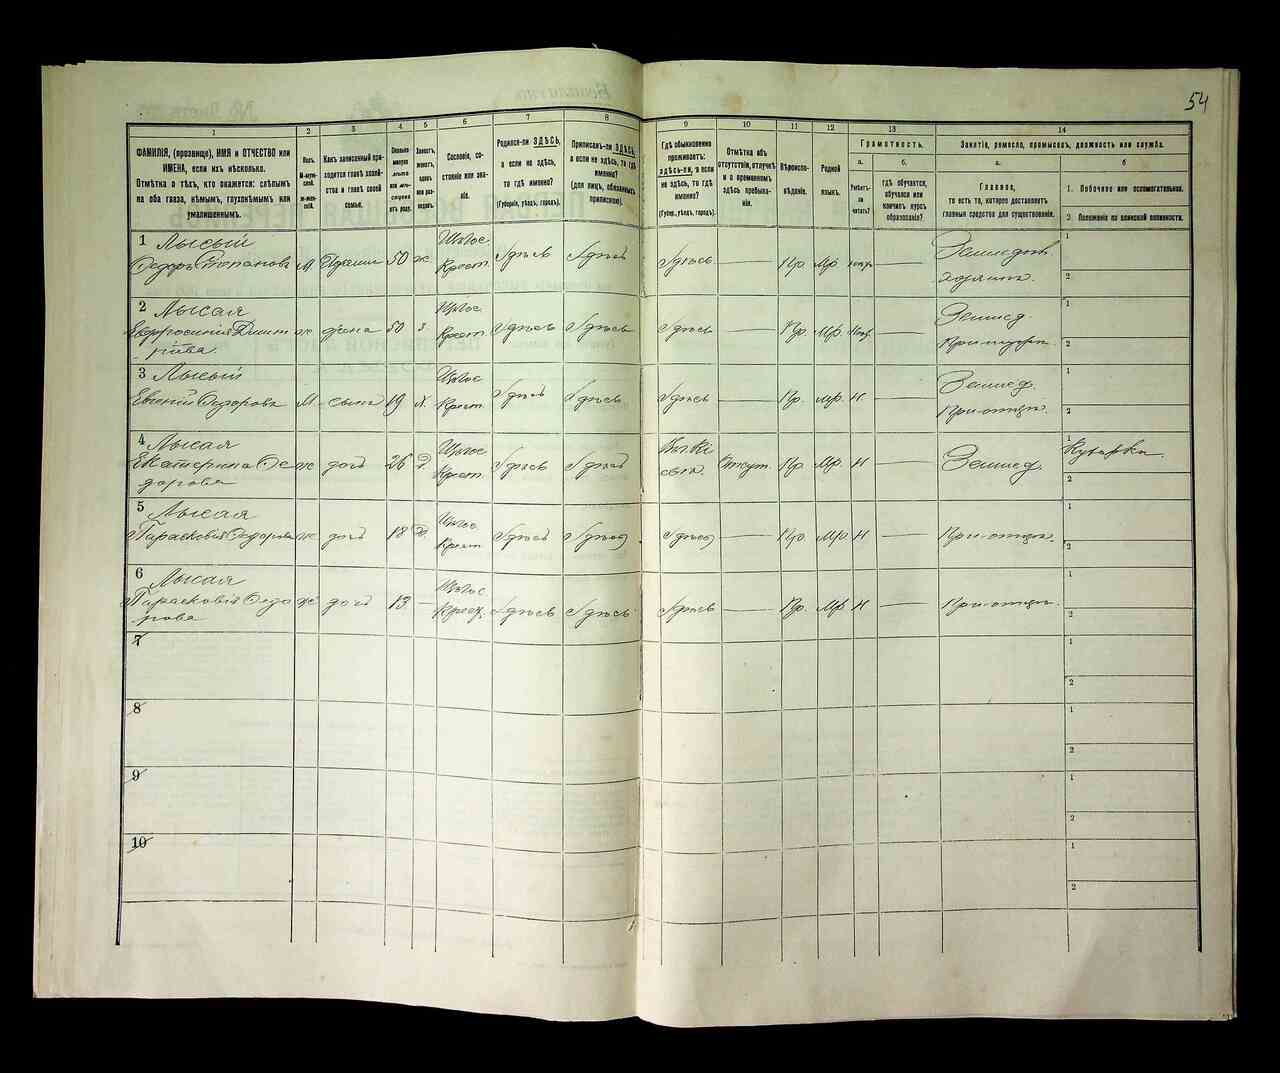 54
1
2
3
4
5
6
7
8
9
10
11
12
13
14
ФАМИЛІЯ, (прозвище), ИМЯ и ОТЧЕСТВО или
ИМЕНА, если ихъ нѣсколько.
Отмѣтка о тѣхъ, кто окажется: слѣпымъ
на оба глаза, нѣмымъ, глухонѣмымъ или
умалишеннымъ.
Полъ.
М-муж-
ской.
ж-жен-
скій.
Какъ записанный при-
ходится главѣ хозяй-
ства и главѣ своей
семьи.
Сколько
минуло
лѣтъ
или мѣ-
сяцевъ
отъ роду.
Холостъ,
женатъ,
вдовъ
или раз-
веденъ.
Сословіе, со-
стояніе или зва-
ніе.
Родился-ли ЗДѢСЬ,
а если не здѣсь,
то гдѣ именно?
(Губернія, уѣздъ, городъ).
Приписанъ-ли ЗДѢСЬ,
а если не здѣсь, то гдѣ
именно?
(для лицъ, обязанныхъ
припискою).
Гдѣ обыкновенно
проживаетъ:
здѣсь-ли, а если
не здѣсь, то гдѣ
именно?
(Губер., уѣздъ, городъ).
Отмѣтка объ
отсутствіи, отлучкѣ
и о временномъ
здѣсь пребыва-
ніи.
Вѣроиспо-
вѣданіе.
Родной
языкъ.
Грамотность.
а.
Умѣетъ-
ли
читать?
б.
гдѣ обучается,
обучался или
кончилъ курсъ
образованія?
Занятіе, ремесло, промыселъ, должность или служба.
а.
Главное,
то есть то, которое доставляетъ
главныя средства для существованія.
б
1. Побочное или вспомогательное.
2. Положеніе по воинской повинности.
1 Лысый
Федоръ Степановъ М. 50 ж. Крест. Здѣсь Здѣсь Здѣсь — Пр. Мр.
1
2
2 Лысая
Евфросинія Дмит
ріева ж жена 50 з Крест. Здѣсь Здѣсь Здѣсь — Пр. Мр. Землед.
1
2
3 Лысый
Евгеній Федоровъ М сынъ 19 х. Крест. Здѣсь Здѣсь Здѣсь — Пр. Мр. Н — Землед.
При отцѣ.
1
2
4 Лысая
Екатерина Фе
дорова ж дочь 26 Крест. Здѣсь Здѣсь Отсут. Пр. Мр. Н — Землед.
1 Кухарка.
2
5 Лысая
Парасковія Федорова ж дочь 18 Крест. Здѣсь Здѣсь Здѣсь — Пр. Мр. Н — При отцѣ.
1
2
6 Лысая
Парасковія Федо
рова ж дочь 13 — Крест. Здѣсь Здѣсь Здѣсь — Пр. Мр. Н — При отцѣ.
1
2
7
1
2
8
1
2
9
1
2
10
1
2